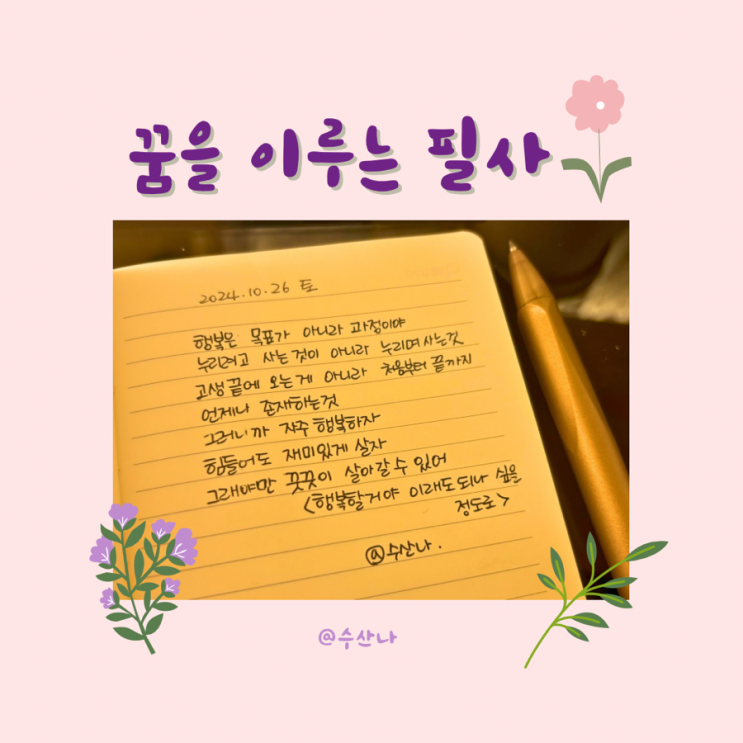 꿈을 이루는 필사
2024.10.26 토
행복은 목표가 아니라 과정이야
누리려고 사는것이 아니라 누리며사는것
고생끝에 오는게 아니라 처음부터 끝까지
언제나 존재하는것
그러니까 자주 행복하자
힘들어도 재미있게 살자
그래야만 꿋꿋이 살아갈 수 있어
<행복할거야 이래도되나 싶을
정도로>
@수산나.
@수산나